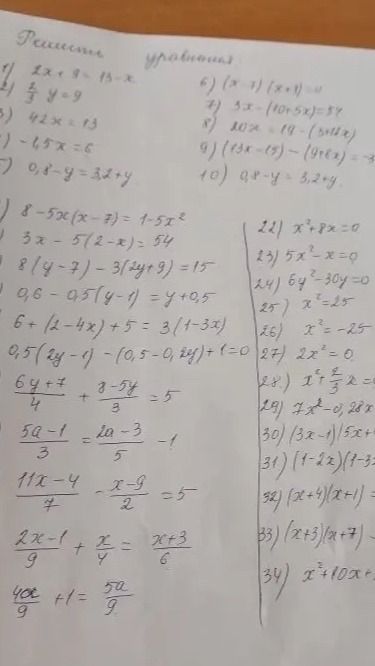 Решить уравнения
1) 2x + 9 = 13 - x
2) 2/3 y = 9
3) 42x = 13
) -1,5x = 6
5) 0,8 - y = 3,2 + y
6) (x - 7)(x + 8) = 0
7) 3x - (10 + 5x) = 54
8) 20x = 19 - (3 + 12x)
9) (13x - 15) - (9 + 6x) = -3
10) 0,8 - y = 3,2 + y
) 8 - 5x(x - 7) = 1 - 5x²
3x - 5(2 - x) = 54
8(y - 7) - 3(2y + 9) = 15
0,6 - 0,5(y - 1) = y + 0,5
6 + (2 - 4x) + 5 = 3(1 - 3x)
0,5(2y - 1) - (0,5 - 0,2y) + 1 = 0
(6y + 7)/4 + (8 - 5y)/3 = 5
(5a - 1)/3 = (2a - 3)/5 - 1
(11x - 4)/7 - (x - 9)/2 = 5
(2x - 1)/9 + x/4 = (x + 3)/6
4a/9 + 1 = 5a/9
22) x² + 8x = 0
23) 5x² - x = 0
24) 6y² - 30y = 0
25) x² = 25
26) x² = -25
27) 2x² = 0
28) x² + 2/3 x =
29) 7x² - 0,28x
30) (3x - 1)(5x +
31) (1 - 2x)(1 - 3
32) (x + 4)(x + 1) =
33) (x + 3)(x + 7) -
34) x² + 10x +